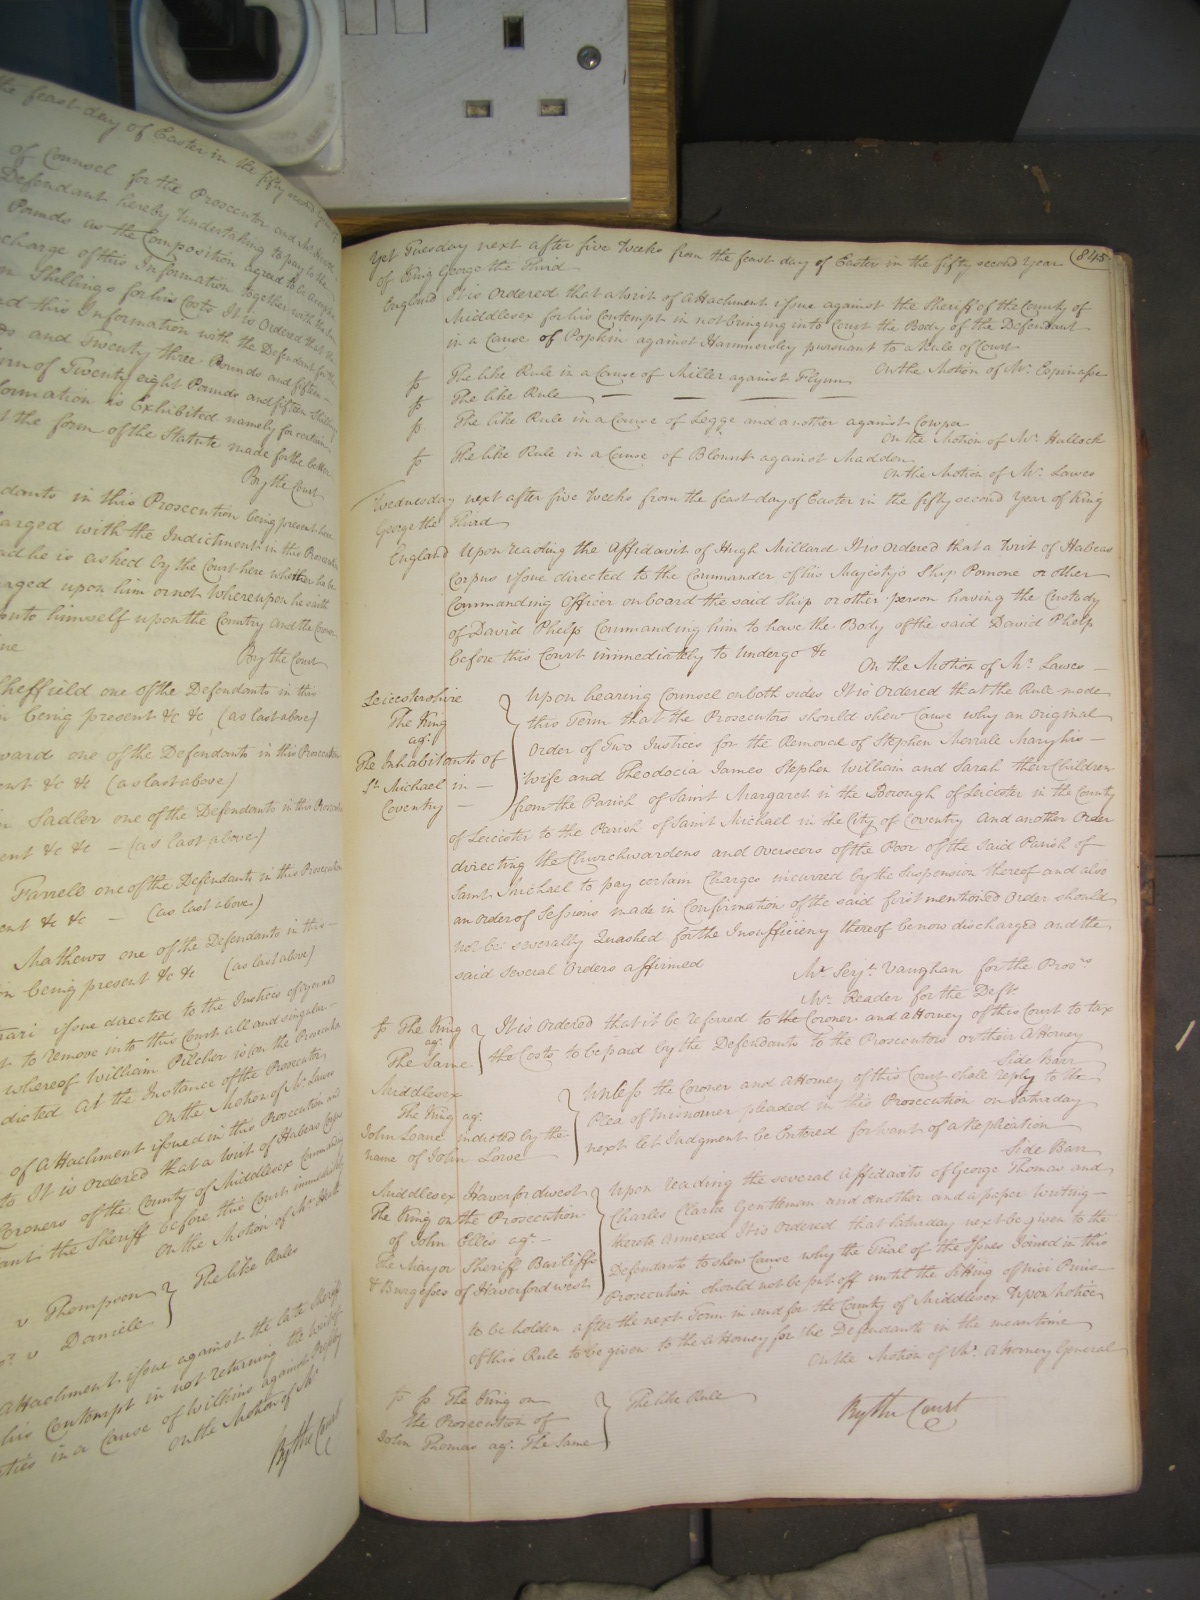 the feast day of Easter in the fifty second year
of Counsel for the Prosecutor and Mr
Defendant hereby undertaking to pay to the
Pounds as the Composition agreed to be
charge of this Information together with the
Shillings for his Costs It is Ordered that
this Information with the Defendant for the
and Twenty three Pounds and fifteen
of Twenty eight Pounds and fifteen Shillings
formation is Exhibited namely for certain
the form of the Statute made for the better
By the Court
dants in this Prosecution being present here
arged with the Indictment in this Prosecution
he is asked by the Court here whether he be
aged upon him or not Whereupon he saith
himself upon the Country and the Coroner
By the Court
Sheffield one of the Defendants in this
being present &c &c (as last above)
ward one of the Defendants in this Prosecution
ent &c &c (as last above)
Sadler one of the Defendants in this Prosecution
ent &c &c — (as last above)
Farrell one of the Defendants in this Prosecution
ent &c &c — (as last above)
Mathews one of the Defendants in this —
being present &c &c (as last above)
rari issue directed to the Justices of
to remove into this Court all and singular
whereof William Pilcher is (on the Prosecution
dicted At the Instance of the Prosecutor
On the Motion of Mr. Lawes
of Attachment issued in this Prosecution and
It is Ordered that a Writ of Habeas Corpus
Coroners of the County of Middlesex Commanding
the Sheriff before this Court immediately
On the Motion of Mr.
v Thompson } The like Rules
v Daniele
Attachment issue against the late Sheriff
his Contempt in not returning the Writ of
in a Cause of Wilkins against
On the Motion of Mr
By the Court
Yet Tuesday next after five Weeks from the feast day of Easter in the fifty second Year 845
of King George the Third
England It is Ordered that a Writ of Attachment issue against the Sheriff of the County of
Middlesex for his Contempt in not bringing into Court the Body of the Defendant
in a Cause of Popkin against Hammersley pursuant to a Rule of Court
On the Motion of Mr. Espinasse
The like Rule in a Cause of Miller against Flynn
The like Rule — — — —
The like Rule in a Cause of Legge and another against Cowper
On the Motion of Mr. Hullock
The like Rule in a Cause of Blount against Madden
On the Motion of Mr. Lawes
Wednesday next after five Weeks from the feast day of Easter in the fifty second Year of King
George the Third
England Upon reading the Affidavit of Hugh Millard It is Ordered that a Writ of Habeas
Corpus issue directed to the Commander of his Majesty's Ship Pomone or other
Commanding Officer on board the said Ship or other person having the Custody
of David Phelp Commanding him to have the Body of the said David Phelp
before this Court immediately to Undergo &c
On the Motion of Mr. Lawes —
Leicestershire
The King
agt.
The Inhabitants of
St. Michael in —
Coventry —
Upon hearing Counsel on both sides It is Ordered that the Rule made
this Term that the Prosecutors should shew Cause why an Original
Order of Two Justices for the Removal of Stephen Merrale Mary his —
Wife and Theodocia James Stephen William and Sarah their Children
from the Parish of Saint Margaret in the Borough of Leicester in the County
of Leicester to the Parish of Saint Michael in the City of Coventry and another Order
directing the Churchwardens and Overseers of the Poor of the said Parish of
Saint Michael to pay certain Charges incurred by the Suspension thereof and also
an Order of Sessions made in Confirmation of the said first mentioned Order should
not be severally Quashed for the Insufficiency thereof be now discharged and the
said several Orders affirmed
Mr. Serjt. Vaughan for the Pros.rs
Mr. Reader for the Defts.
The King
agt.
The Same
It is Ordered that it be referred to the Coroner and Attorney of this Court to tax
the Costs to be paid by the Defendants to the Prosecutors or their Attorney
Side Barr
Middlesex
The King agt.
John Loane indicted by the
name of John Lowe
Unless the Coroner and Attorney of this Court shall reply to the
Plea of Misnomer pleaded in this Prosecution on Saturday
next let Judgment be Entered for want of a Replication
Side Barr
Middlesex Haverfordwest
The King on the Prosecution
of John Ellis agt. —
The Mayor Sheriff Bailiffs
& Burgesses of Haverfordwest
Upon reading the several Affidavits of George Thomas and
Charles Clarke Gentleman and another and a paper Writing —
thereto annexed It is Ordered that Saturday next be given to the
Defendants to shew Cause why the Trial of the Issues Joined in this
Prosecution should not be put off until the Sitting of Nisi Prius —
to be holden after the next Term in and for the County of Middlesex Upon Notice
of this Rule to be given to the Attorney for the Defendants in the meantime
On the Motion of Mr. Attorney General
The King on
the Prosecution of
John Thomas agt. The Same
The like Rule
By the Court